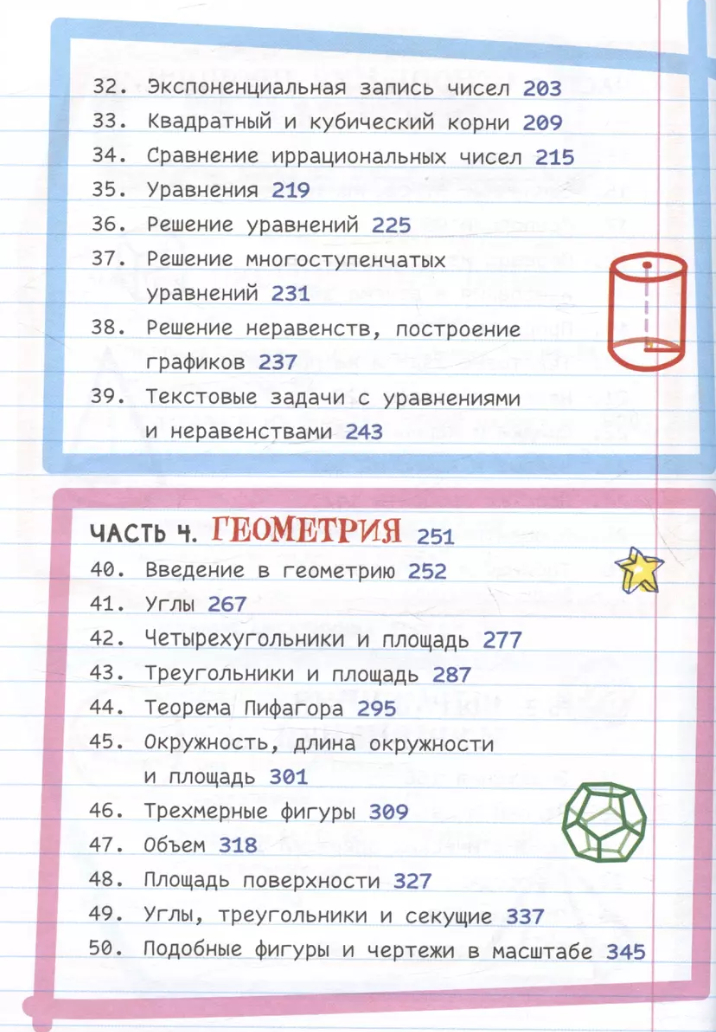 32. Экспоненциальная запись чисел 203
33. Квадратный и кубический корни 209
34. Сравнение иррациональных чисел 215
35. Уравнения 219
36. Решение уравнений 225
37. Решение многоступенчатых
уравнений 231
38. Решение неравенств, построение
графиков 237
39. Текстовые задачи с уравнениями
и неравенствами 243
ЧАСТЬ 4. ГЕОМЕТРИЯ 251
40. Введение в геометрию 252
41. Углы 267
42. Четырехугольники и площадь 277
43. Треугольники и площадь 287
44. Теорема Пифагора 295
45. Окружность, длина окружности
и площадь 301
46. Трехмерные фигуры 309
47. Объем 318
48. Площадь поверхности 327
49. Углы, треугольники и секущие 337
50. Подобные фигуры и чертежи в масштабе 345